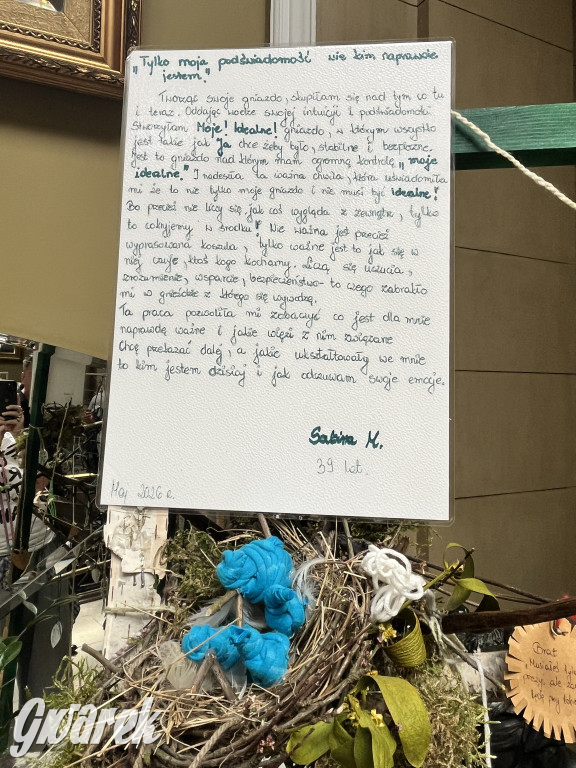 "Tylko moja podświadomość wie kim naprawdę
jestem."
Tworząc swoje gniazdo, skupiłam się nad tym co tu
i teraz. Oddając wodze swojej intuicji i podświadomości
stworzyłam Moje! Idealne! gniazdo, w którym wszystko
jest takie jak Ja chcę żeby było, stabilne i bezpieczne.
Jest to gniazdo nad którym mam ogromną kontrolę, "moje
idealne." I nadeszła ta ważna chwila, która uświadomiła
mi że to nie tylko moje gniazdo i nie musi być idealne!
Bo przecież nie liczy się jak coś wygląda z zewnątrz, tylko
to co kryjemy w środku! Nie ważna jest przecież
wyprasowana koszula, tylko ważne jest to jak się w
niej czuje, ktoś kogo kochamy. Liczą się uczucia,
zrozumienie, wsparcie, bezpieczeństwo - to czego zabrakło
mi w gnieździe z którego się wywodzę.
Ta praca pozwoliła mi zobaczyć co jest dla mnie
naprawdę ważne i jakie więzi z nim związane
Chcę przekazać dalej, a jakie ukształtowały we mnie
to kim jestem dzisiaj i jak odczuwam swoje emocje.
Sabina M.
39 lat.
Maj 2026 r.
Brat
Gwarek